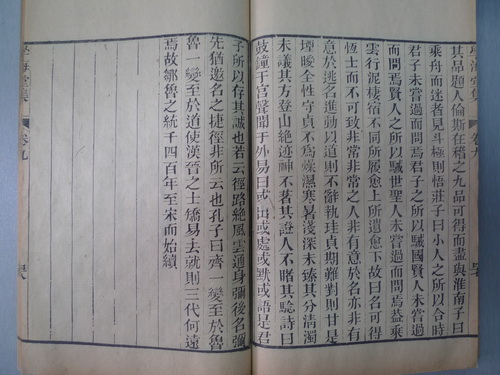 其品題人倫斯在稽之九品可得而盡與淮南子曰
乘舟而迷者見斗極則悟莊子曰小人之所以合時
君子未嘗過而問焉君子之所以駴國賢人未嘗過
而問焉賢人之所以駴世聖人未嘗過而問焉葢乘
雲行泥棲宿不同所履愈上所遺愈下故曰名可得
恆士而不可致非常非常之人非有意於名亦非有
意於逃名進動以道則不辭執珪貞期難對則甘是
堙曖全性守貞不為燥濕寒暑淺深未臻其分清濁
未議其方登山絶迹神不著其證人不睹其驗詩曰
鼓鐘于宮聲聞于外易曰或出或處或默或語是君
子所以存其誠也若云徑路絶風雲通身彌後名彌
先猶邀名之捷徑非所云也孔子曰齊一變至於魯
魯一變至於道使漢晉之士矯易去就則三代何遠
焉故鄒魯之統千四百年至宋而始續
學海堂集
卷九